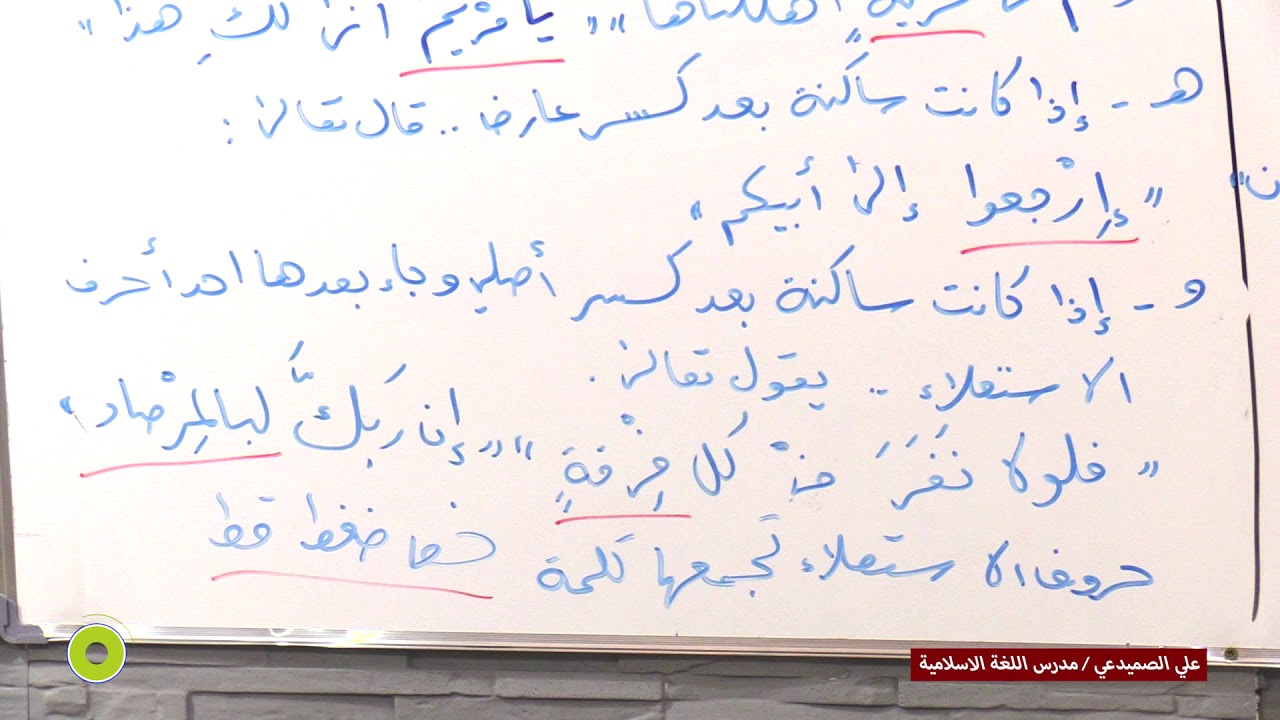 قرية أهلكناها"" يا مريم أنى لكِ هذا"
هـ - إذا كانت ساكنة بعد كسر عارض .. قال تعالى :
" إِرْجعوا إلى أبيكم "
و - إذا كانت ساكنة بعد كسر أصلي وجاء بعدها احد أحرف
ن"
الاستعلاء .. يقول تعالى .
" فلولا نَفَرَ من كل فِرْقةٍ " " إن رَبَّكَ لبالمِرْصاد "
حروف الاستعلاء تجمعها كلمة خص ضغط قط
علي الصميدعي / مدرس اللغة الاسلامية